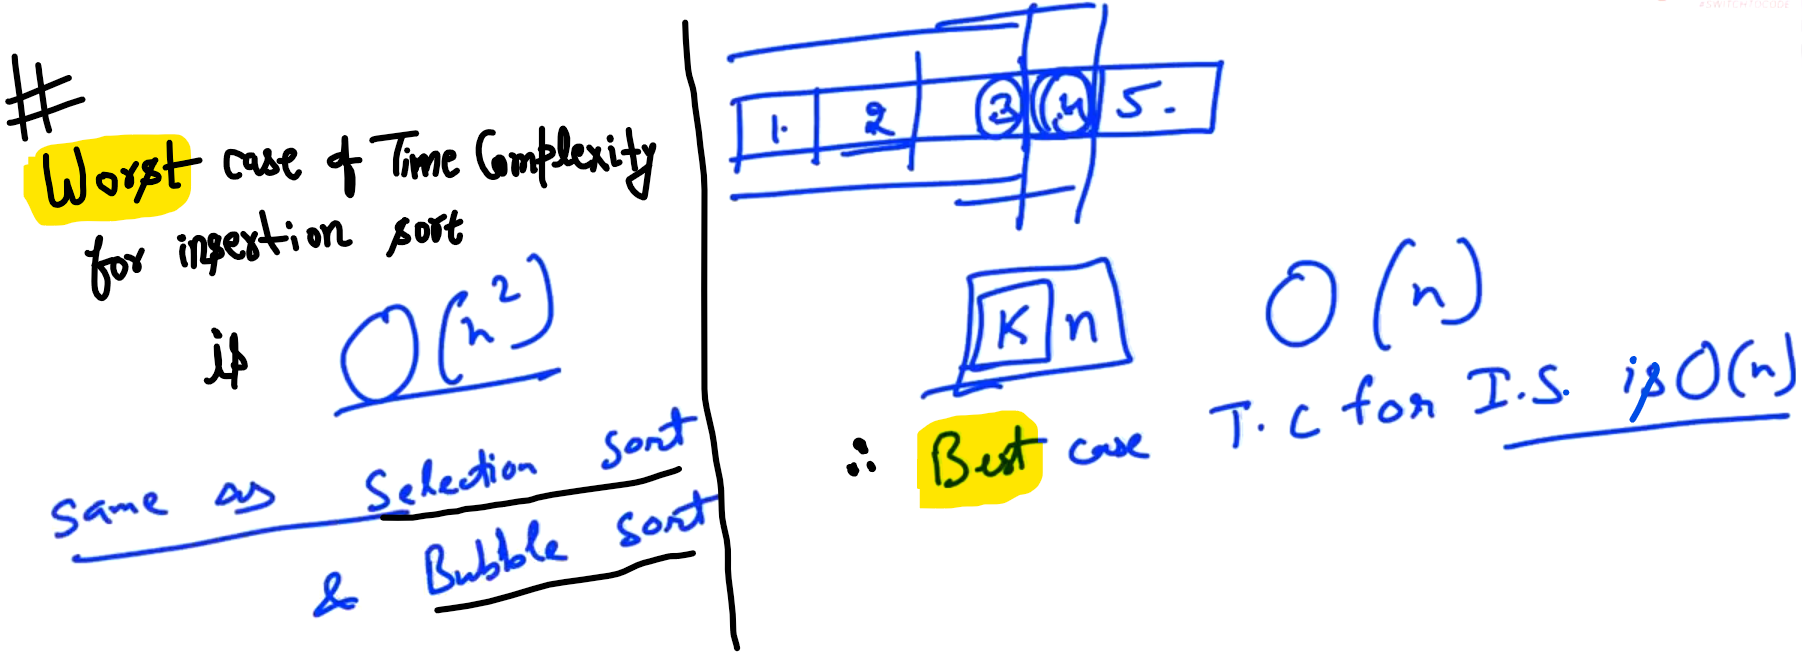 #SWITCHTOCODE
#
Worst case of Time Complexity
for insertion sort
is O(n²)
same as Selection sort
& Bubble sort
1. 2 3 4 5.
K n O(n)
∴ Best case T.C for I.S. is O(n)